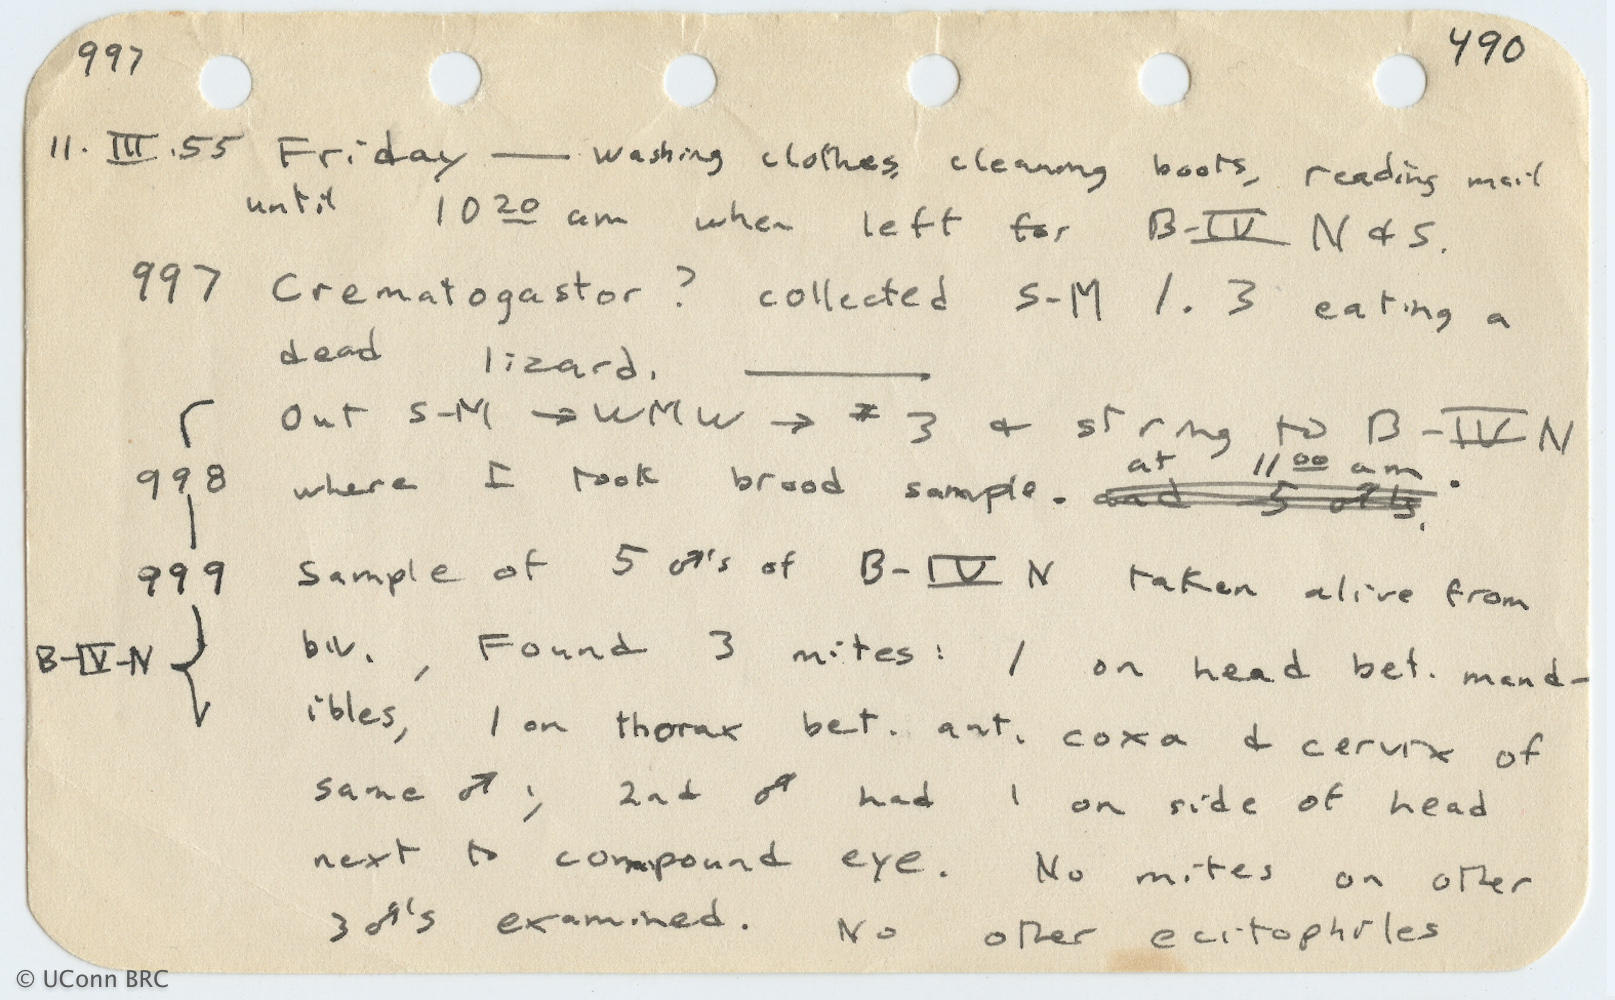 997 490
11. III .55 Friday — washing clothes, cleaning boots, reading mail
until 10 20 am when left for B-IV N & S.
997 Crematogastor ? collected S-M 1.3 eating a
dead lizard. ———
Out S-M → WMW → # 3 & string to B-IV N
at 11 00 am.
998 where I took brood sample. and 5 ♂'s.
999 Sample of 5 ♂'s of B-IV N taken alive from
B-IV-N biv., Found 3 mites: 1 on head bet. mand-
ibles, 1 on thorax bet. ant. coxa & cervix of
same ♂; 2nd ♂ had 1 on side of head
next to compound eye. No mites on other
3 ♂'s examined. No other ecitophiles
© UConn BRC